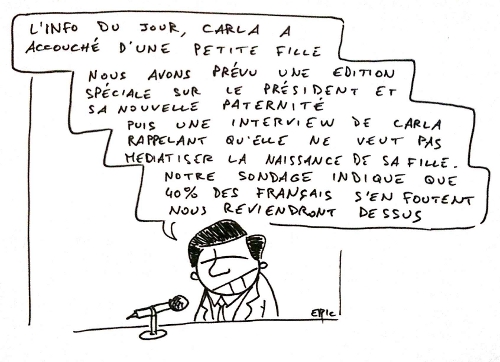 L'INFO DU JOUR, CARLA A
ACCOUCHÉ D'UNE PETITE FILLE
NOUS AVONS PRÉVU UNE EDITION
SPÉCIALE SUR LE PRÉSIDENT ET
SA NOUVELLE PATERNITÉ
PUIS UNE INTERVIEW DE CARLA
RAPPELANT QU'ELLE NE VEUT PAS
MEDIATISER LA NAISSANCE DE SA FILLE.
NOTRE SONDAGE INDIQUE QUE
40% DES FRANÇAIS S'EN FOUTENT
NOUS REVIENDRONT DESSUS